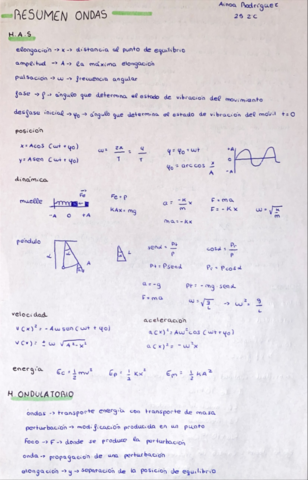 RESUMEN ONDAS
Ainoa Rodríguez
2S 2C
H.A.S.
elongación → x → distancia al punto de equilibrio
amplitud → A → la máxima elongación
pulsación → ω → frecuencia angular
fase → φ → ángulo que determina el estado de vibración del movimiento
desfase inicial → φ₀ → ángulo que determina el estado de vibración del móvil t=0
posición
x = A cos (ωt + φ₀)
x = A sen (ωt + φ₀)
φ = φ₀ + ωt
φ₀ = arccos x/A
+A
-A
dinámica
muelle
-A O +A
Fe = P
KΔx = mg
a = -K/m x
ma = -Kx
F = ma
F = -Kx
ω = √K/m
péndulo
L
senα =
cosα =
a = -g
F = ma
ω = √g/L → ω² = g/L
velocidad
aceleración
v(x) = ± ω √A² - x²
energía Ec = 1/2 mv² Ep = 1/2 Kx² Em = 1/2 KA²
M. ONDULATORIO
ondas → transporte energía con transporte de masa
perturbación → modificación producida en un punto
foco → F → donde se produce la perturbación
onda → propagación de una perturbación
elongación → y → separación de la posición de equilibrio